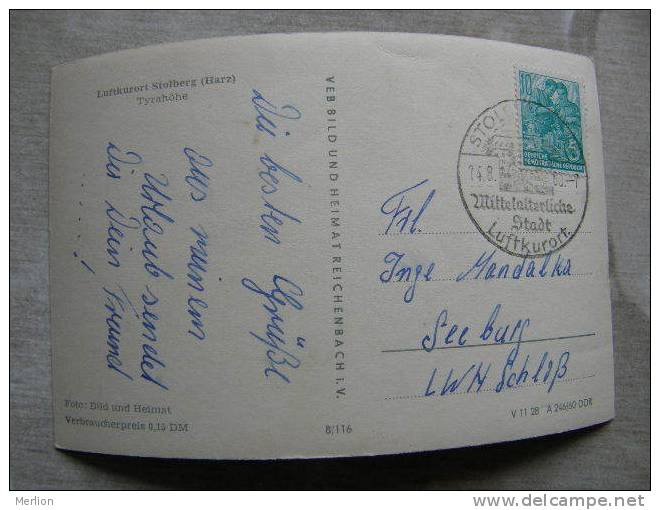 Luftkurort Stolberg (Harz)
Tyrahöhe
Die besten Grüße
aus meinem
Urlaub sendet
Dir Dein Freund
. . . . . !
Foto: Bild und Heimat
Verbraucherpreis 0,15 DM
VEB BILD UND HEIMAT REICHENBACH I. V.
8/116
10
DEUTSCHE
DEMOKRATISCHE REPUBLIK
STOL
14.8.
Mittelalterliche
Stadt
Luftkurort
Frl.
Inge Mandalka
Seeburg
LWH Schloß
V 11 28 A 246/60 DDR
Merlion
www.delcampe.net